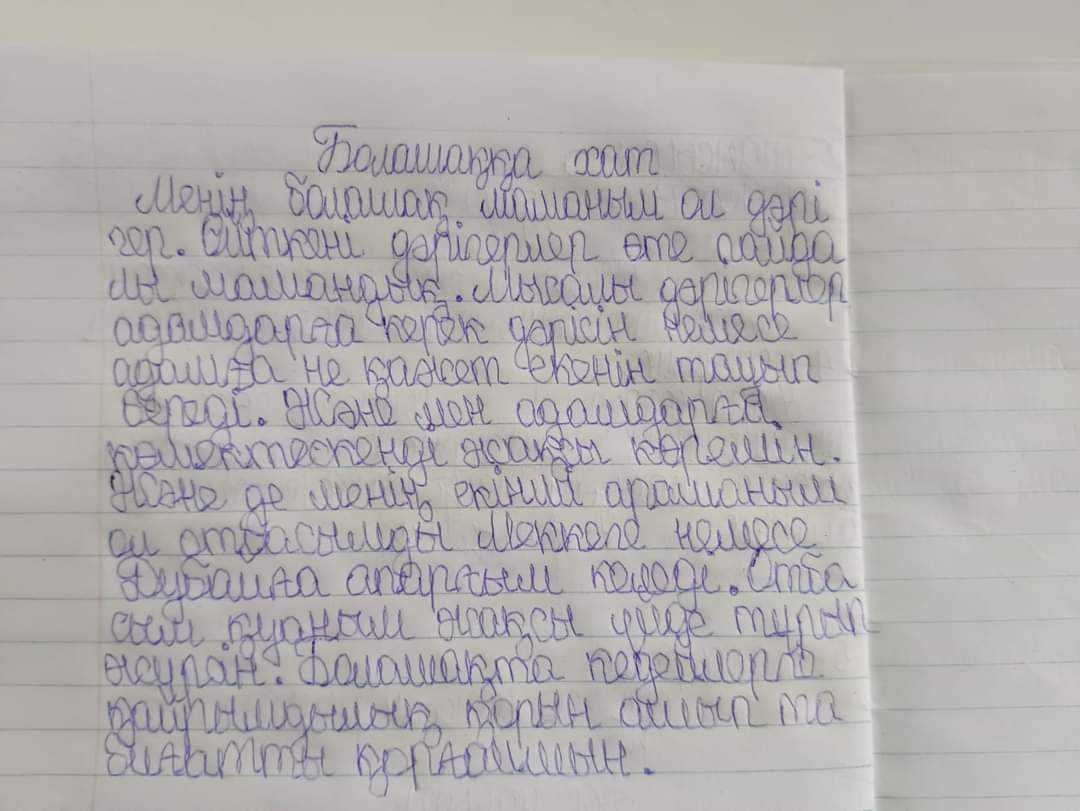 Болашаққа хат
Менің болашақ маманым ол дәрі
гер. Өйткені дәрігерлер өте пайда
лы мамандық. Мысалы дәрігерлер
адамдарға керек дәрісін немесе
адамға не қажет екенін тауып
береді. Және мен адамдарға
көмектескенді жақсы көремін.
Және де менің екінші арманым
ол отбасымды Меккеге немесе
Дубайға апарғым келеді. Отба
сым қуаным жақсы үйде тұрып
жүрген. Болашақта кедейлерге
қайрымдылық қорын ашып та
биғатты қорғаймын.